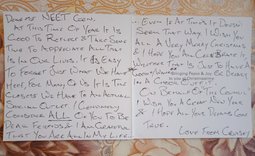 Dearest NEET Coin,
At This Time Of Year It Is
Good To Reflect & Take Some
Time To Appreciate All That
Is In Our Lives. It Is Easy
To Forget Just What We Have
Here, For Many Of Us It Is The
Closest We Have To An Actual
Social Outlet / Community.
Consider ALL Of You To Be
Dear Friends & I Am Grateful
That You Are All In My Life
Even If At Times It Doesn't
Seem That Way. I Wish You
All A Very Merry Christmas
& I Hope You Can Celebrate It
Whatever That Is To Have
On Behalf Of This Council
I Wish You A Great New Year
& I Hope All Your Dreams Come
True.
Love From